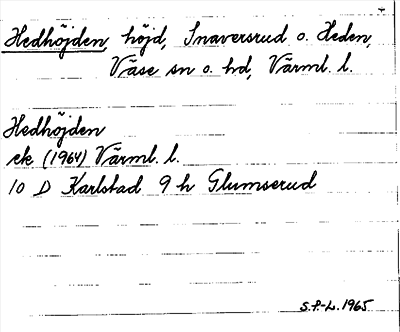 Hedhöjden, höjd, Snaversrud o. Heden,
Väse sn o. hd, Värml. l.
Hedhöjden
ek (1964) Värml. l.
10 D Karlstad 9 h Glumserud
S.P-L. 1965